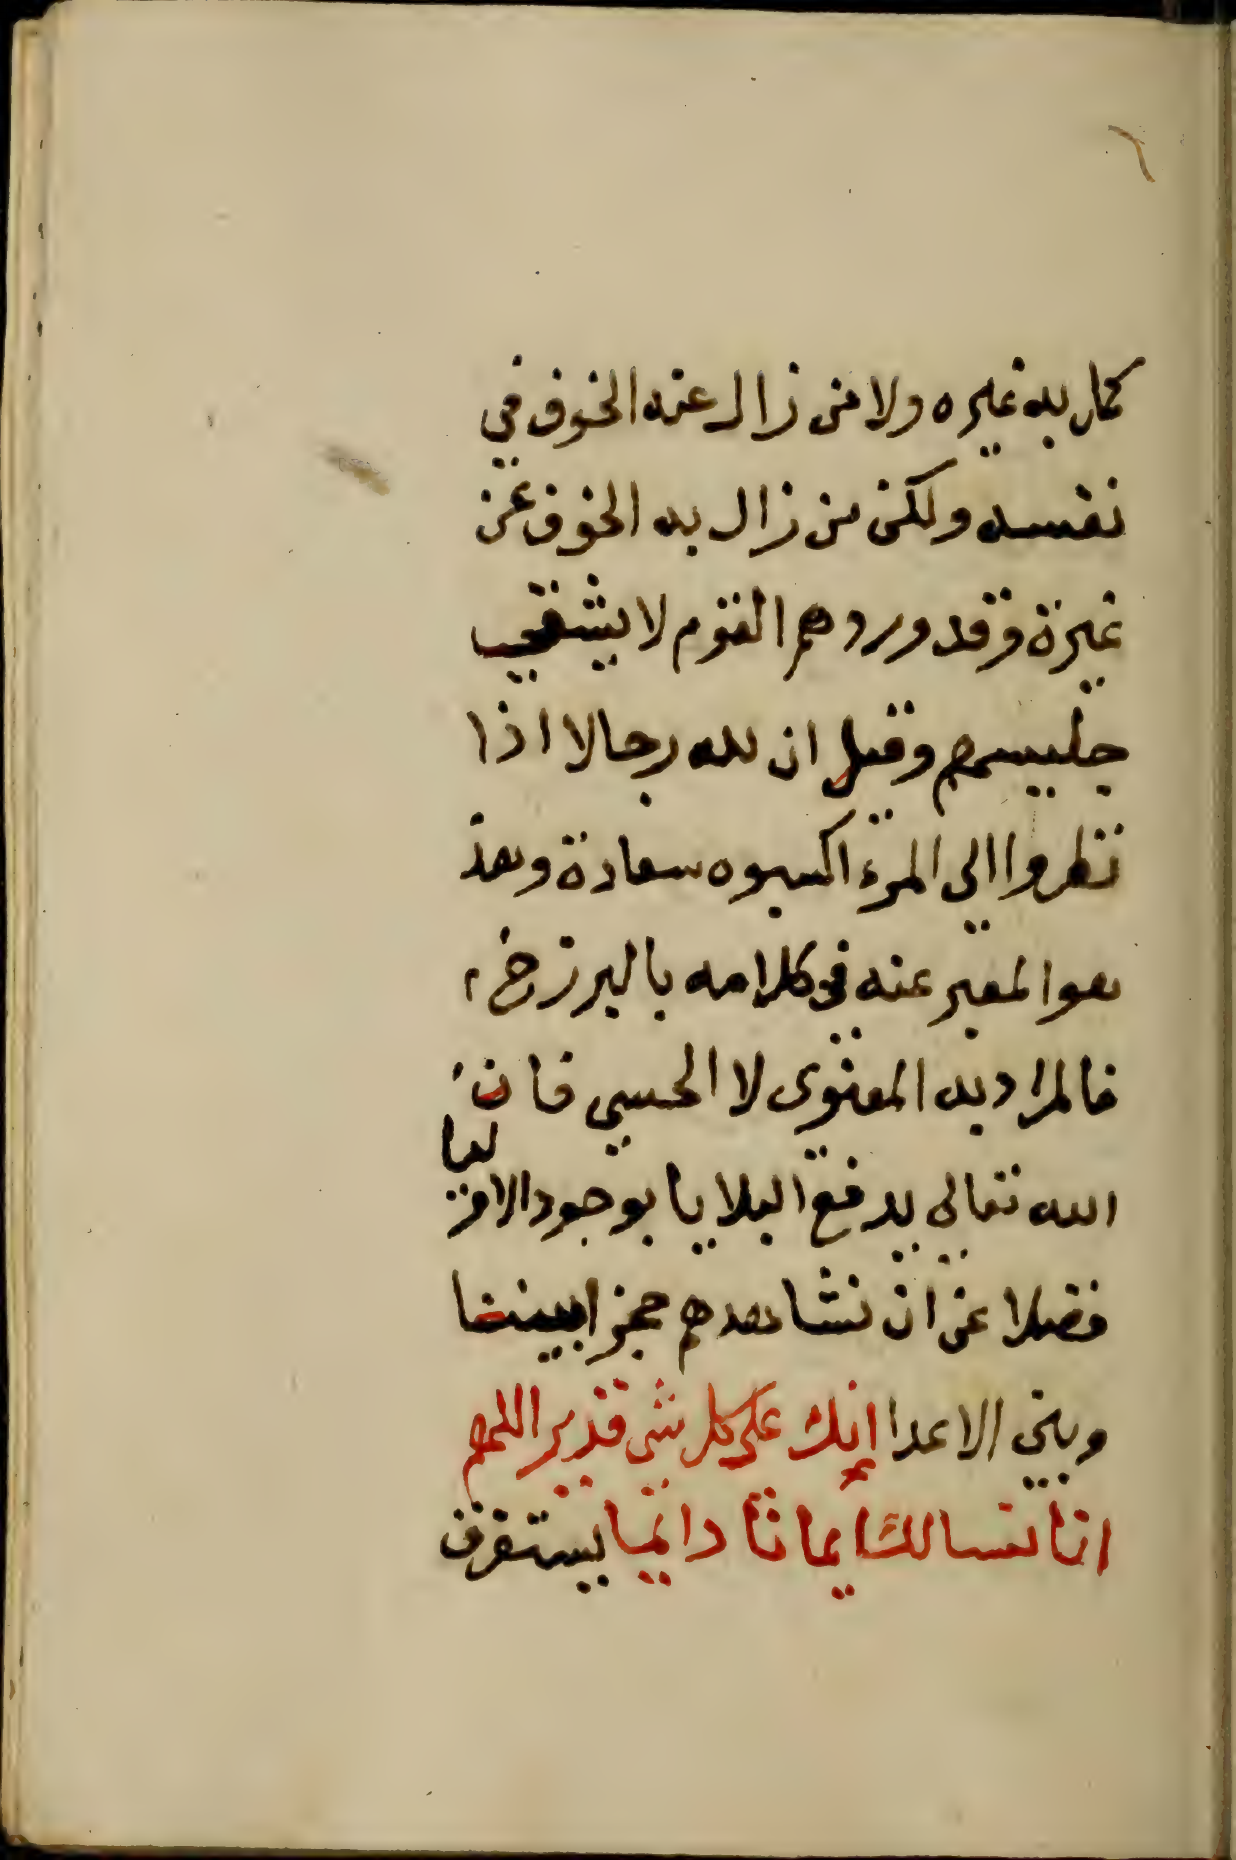 كمل به غيره ولا من زال عنه الخوف في
نفسه ولكن من زال به الخوف عن
غيره وقد ورد هم القوم لا يشقى
جليسهم وقيل ان لله رجالا اذا
نظروا الى المرء اكسبوه سعادة وهذ
هو المعبر عنه في كلامه بالبرزخ
فالمراد به المعنوى لا الحسي فان
الله تعالى يدفع البلايا بوجود الاوليا
فضلا عن ان نشاهدهم حجزا بيننا
وبين الاعدا إنك على كل شى قدير اللهم
انا نسالك ايمانا دائما يستغرق